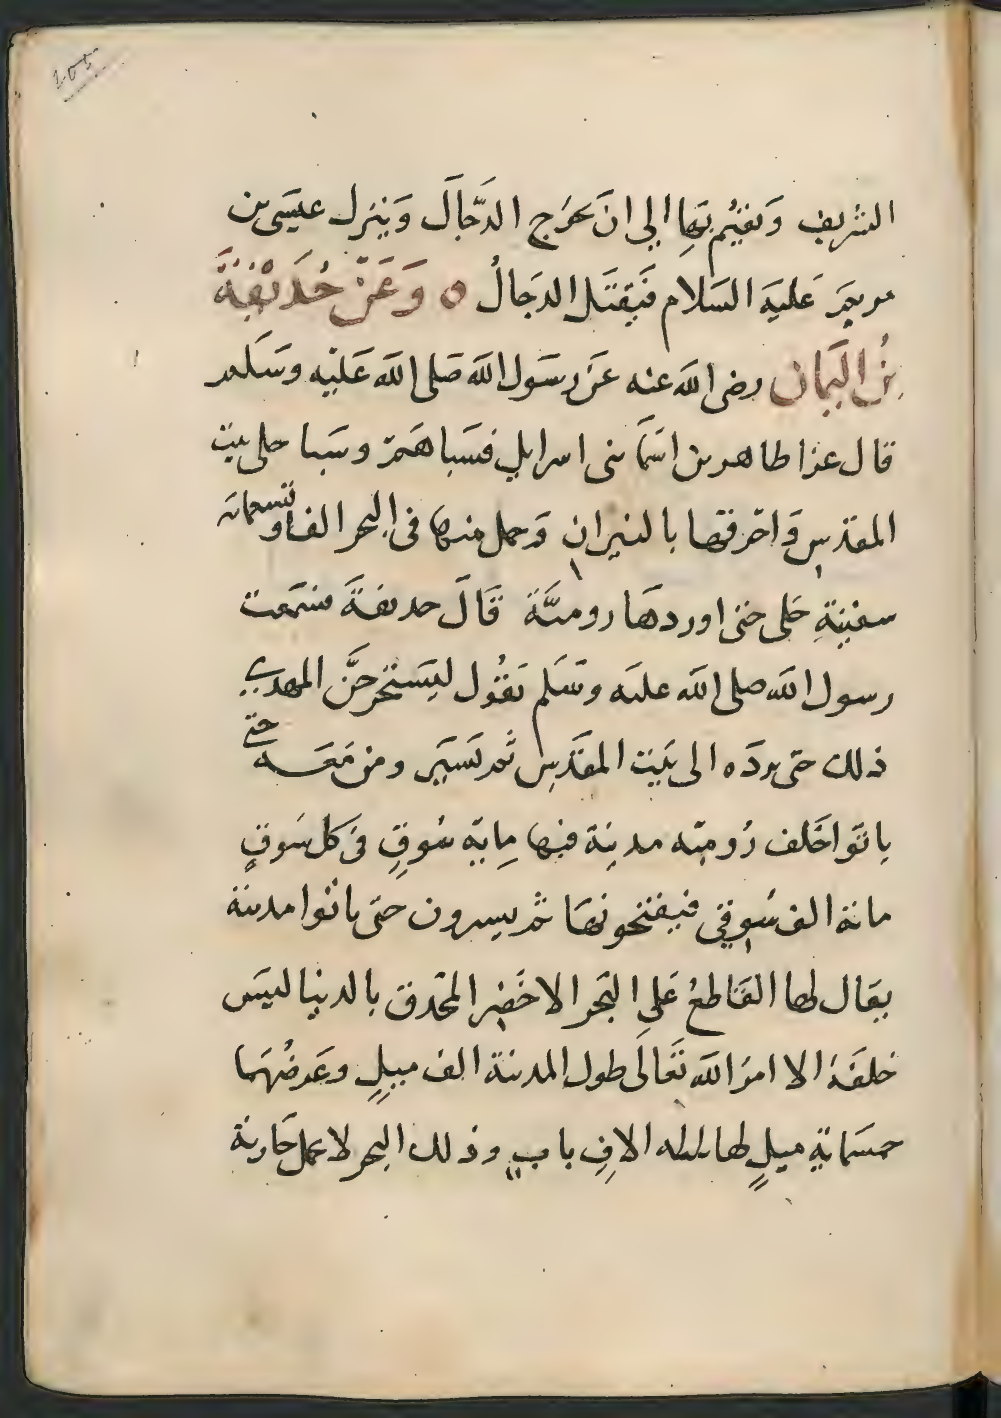 ١٠٥
الشريف وَيقيْم بهَا الي انَ يخرَج الدَجّالَ وَينزل عيسَى بن
مريمَ عَليَه السَلام فَيقتَل الدجَالُ ه وَعَنْ حُذَيْفَةَ
بْنُ اليَمان رضى الله عنه عَن رسَول الله صَلى الله عَليْه وسَلم
قال غزا طاهر بن اسمَا بنى اسرايل فسَباهَمْ وسَبا حلى بيت
المقدس وَاحرقها بالنيران وَحمل منها فى البحر الفا وتسعماىه
سفينةِ حَلى حتى اوردهَا روميَّة قَالَ حديفةَ فسَمَعت
رسول الله صلى الله عليه وسَلم يَقُول ليَستخرجَنَّ المهدى
ذلك حتى يردَه الى بَيت المقدَسِ ثم يَسيَر ومن مَعَه حتى
ياتَوا خَلف رُوميه مدينة فيها مِايَة سُوقٍ فى كل سَوقٍ
مائة الف سُوقي فيفتحونهَا ثم يسيرون حتى ياتوا مدينة
يقال لها القَاطعُ عَلى البَحر الاخضر المحَدق بالدنيا ليسَ
خلفَهُ الا امرَ الله تَعَالَى طول المدينة الف ميلٍ وعَرضُهَا
خمسَماية ميلٍ لها ثلثه الافِ بابٍ وذلك البحر لا يحمل جَارية